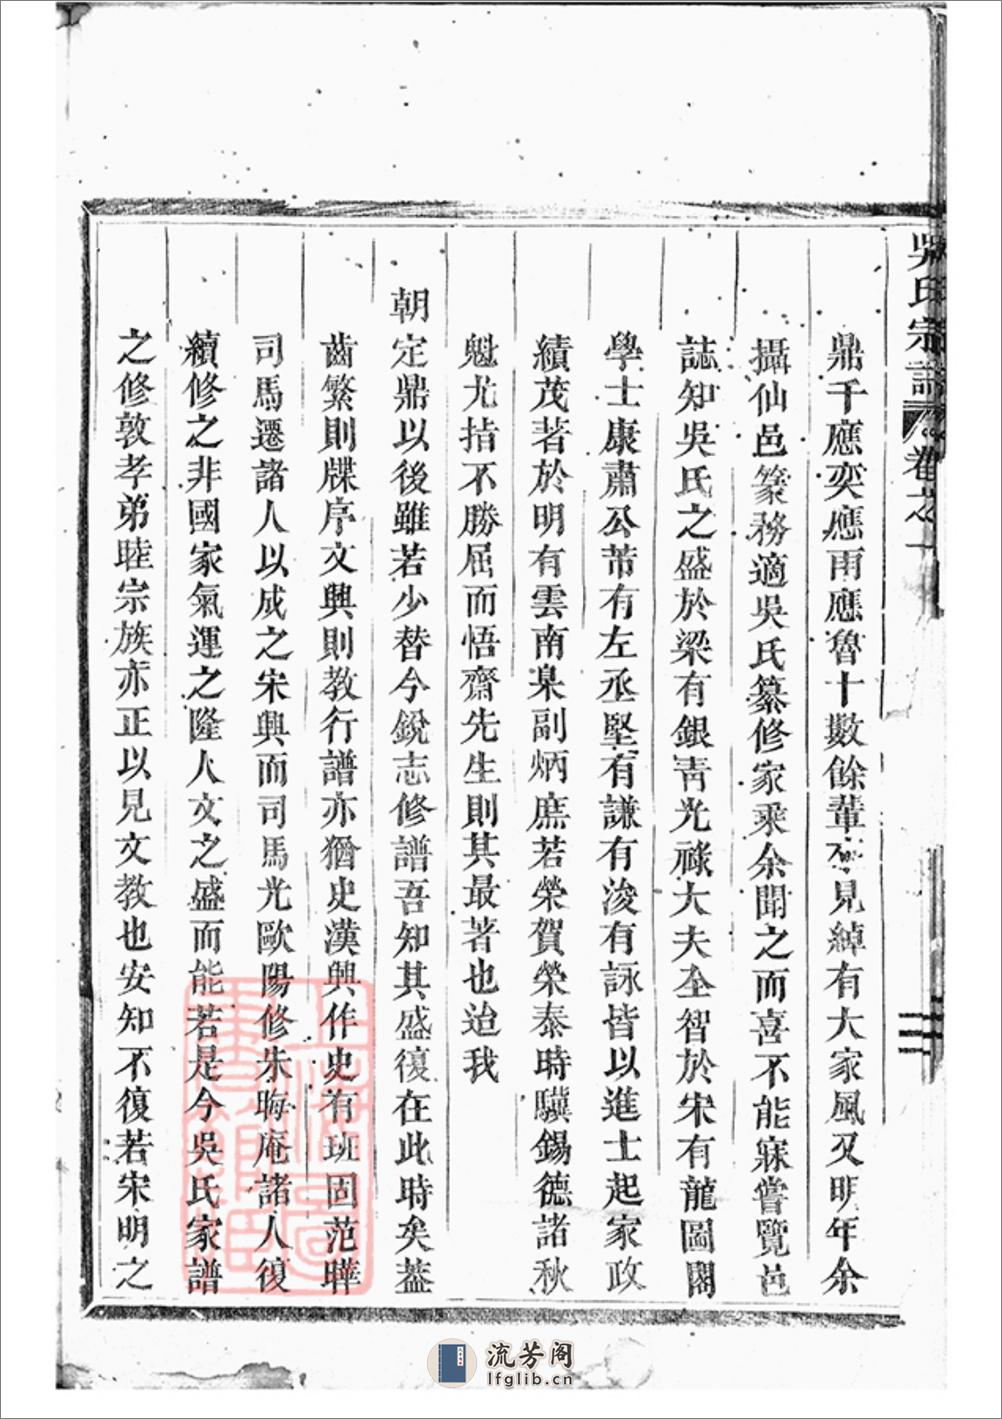 吳氏宗譜 卷之一
鼎千應奕應雨應魯十數餘輩不見綽有大家風又明年余
攝仙邑篆務適吳氏纂修家乘余聞之而喜不能寐嘗覽邑
誌知吳氏之盛於梁有銀青光祿大夫全智於宋有龍圖閣
學士康肅公芾有左丞堅有謙有浚有詠皆以進士起家政
績茂著於明有雲南臬副炳庶若榮賀榮泰時驥錫德諸秋
魁尤指不勝屈而悟齋先生則其最著也迨我
朝定鼎以後雖若少替今銳志修譜吾知其盛復在此時矣蓋
齒繁則牒序文興則教行譜亦猶史漢興作史有班固范曄
司馬遷諸人以成之宋興而司馬光歐陽修朱晦庵諸人復
續修之非國家氣運之隆人文之盛而能若是今吳氏家譜
之修敦孝弟睦宗族亦正以見文教也安知不復若宋明之
流芳阁
lfglib.cn